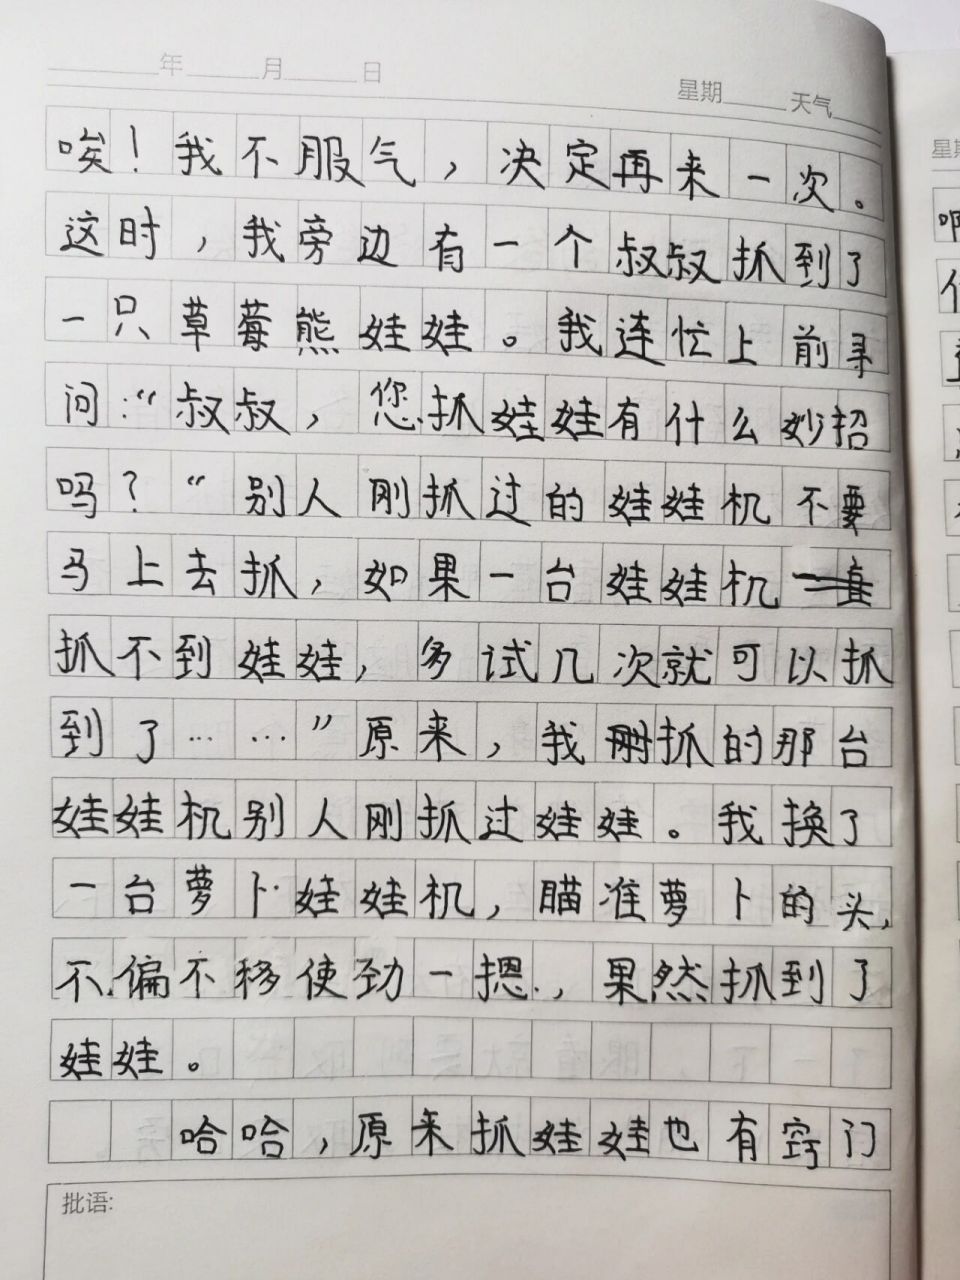 年 月 日 星期 天气
唉！我不服气，决定再来一次。
这时，我旁边有一个叔叔抓到了
一只草莓熊娃娃。我连忙上前寻
问：“叔叔，您抓娃娃有什么妙招
吗？“别人刚抓过的娃娃机不要
马上去抓，如果一台娃娃机
抓不到娃娃，多试几次就可以抓
到了……”原来，我刚抓的那台
娃娃机别人刚抓过娃娃。我换了
一台萝卜娃娃机，瞄准萝卜的头，
不偏不移使劲一摁，果然抓到了
娃娃。
哈哈，原来抓娃娃也有窍门
批语:
星期